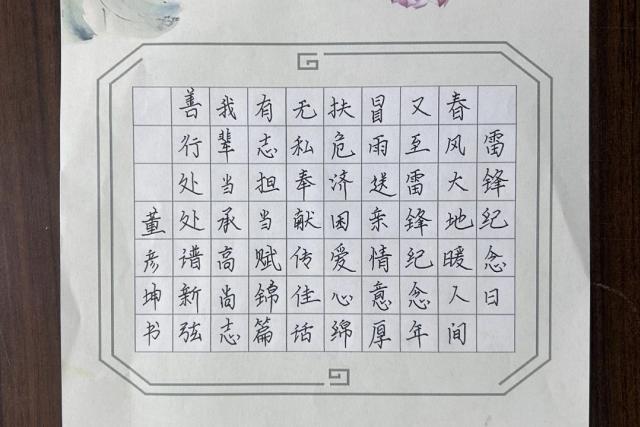 雷锋纪念日
春风大地暖人间
又至雷锋纪念年
冒雨送亲情意厚
扶危济困爱心绵
无私奉献传佳话
有志担当赋锦篇
我辈当承高尚志
善行处处谱新弦
董彦坤书